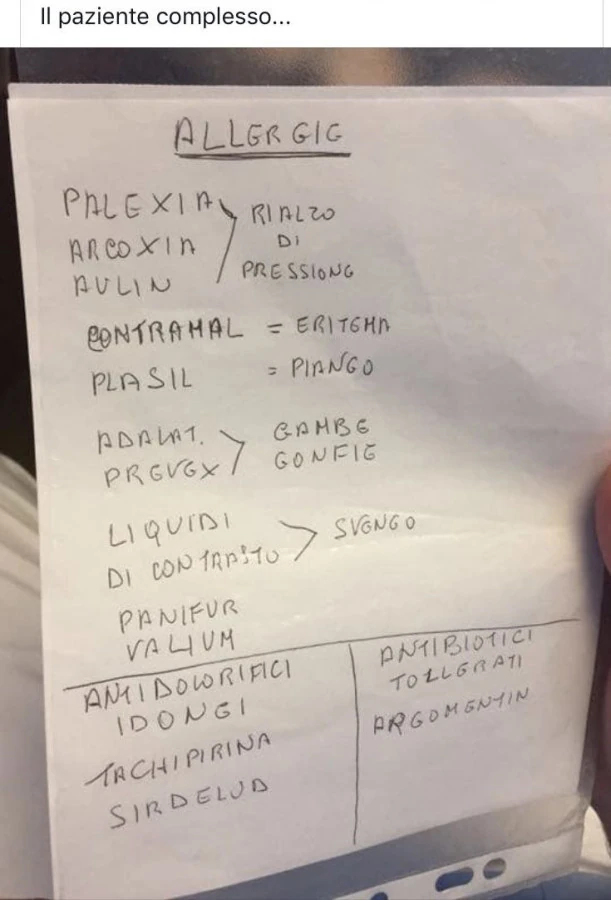 Il paziente complesso...
ALLERGIE
PALEXIA
ARCOXIA
AULIN
RIALZO
DI
PRESSIONE
CONTRAMAL = ERITEMA
PLASIL = PIANGO
ADALAT.
PREVEX
GAMBE
GONFIE
LIQUIDI
DI CONTRASTO
SVENGO
PANIFUR
VALIUM
ANTIDOLORIFICI
IDONEI
TACHIPIRINA
SIRDELUD
ANTIBIOTICI
TOLLERATI
ARGOMENTIN